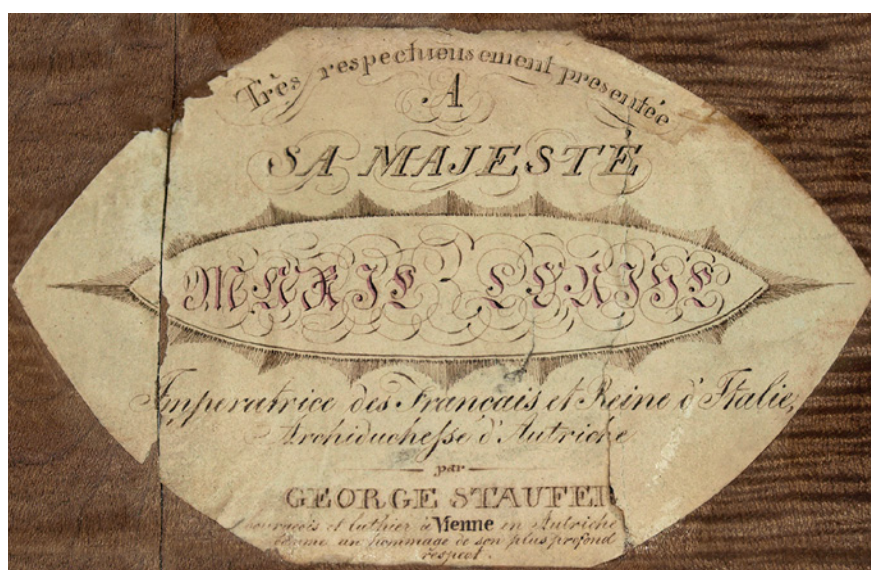 Très respectueusement presentée
A
SA MAJESTÉ
MARIE - LOUISE
Imperatrice des Français et Reine d'Italie,
Archiduchesse d'Autriche
par
GEORGE STAUFER
et luthier à Vienne en Autriche
comme un hommage de son plus profond
respect.